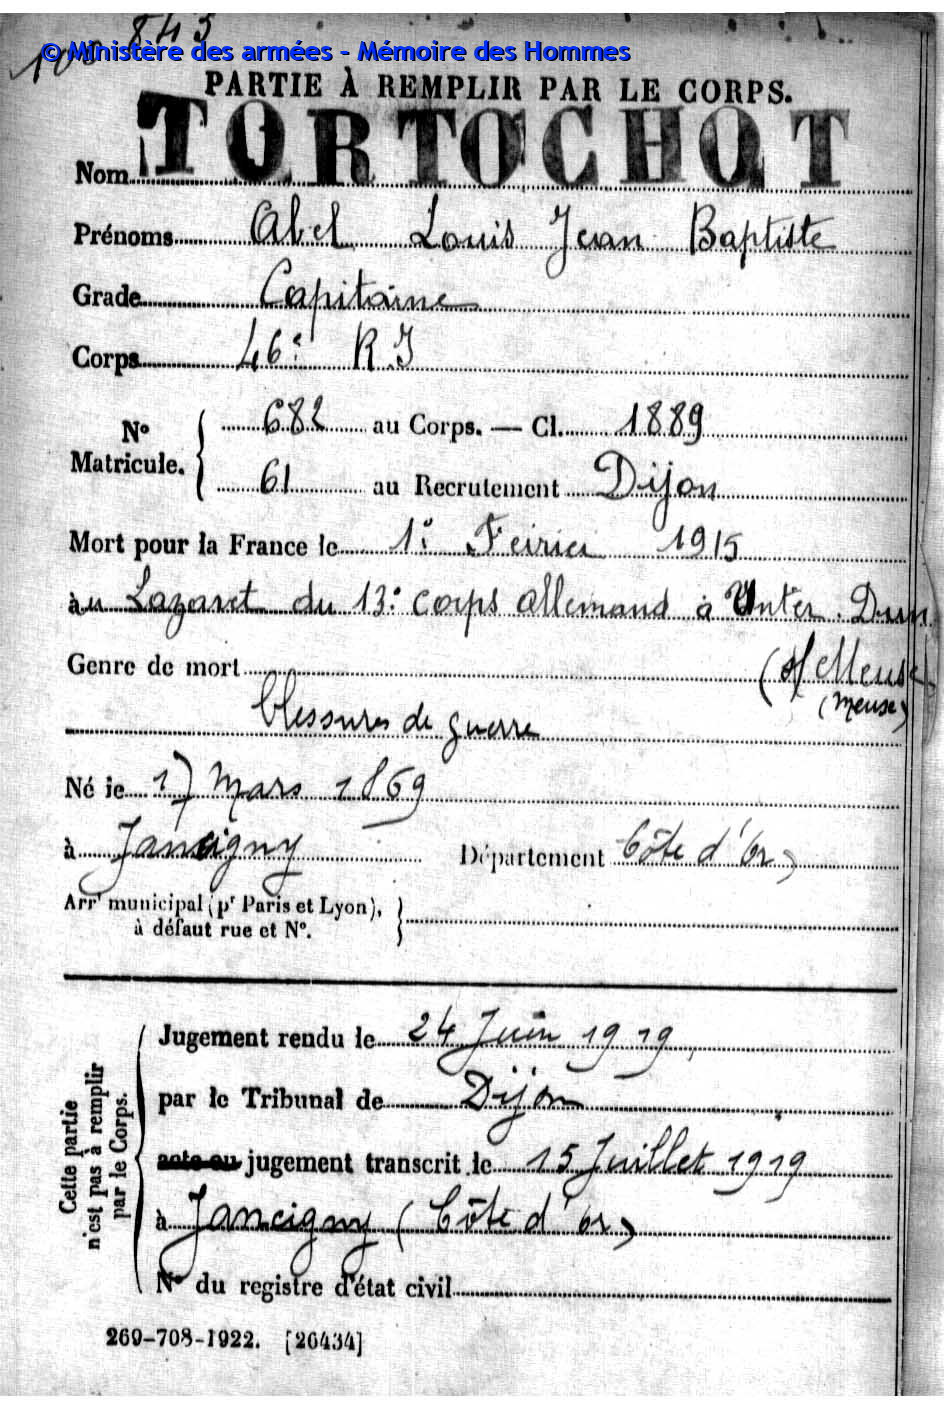 843
100
© Ministère des armées - Mémoire des Hommes
PARTIE À REMPLIR PAR LE CORPS.
Nom TORTOCHOT
Prénoms Abel Louis Jean Baptiste
Grade Capitaine
Corps 46e R.I
N° Matricule. { 682 au Corps. — Cl. 1889
61 au Recrutement Dijon
Mort pour la France le 1er Février 1915
àu Lazaret du 13e corps allemand à Unter. Dun
Genre de mort (s/Meuse)
(Meuse)
blessures de guerre
Né le 17 Mars 1869
à Jancigny Département Côte d'Or)
Arrt municipal (pr Paris et Lyon), }
à défaut rue et N°.
Cette partie
n'est pas à remplir
par le Corps.
Jugement rendu le 24 Juin 1919
par le Tribunal de Dijon
acte ou jugement transcrit le 15 Juillet 1919
à Jancigny (Côte d'Or)
N° du registre d'état civil
269-708-1922. [26434]